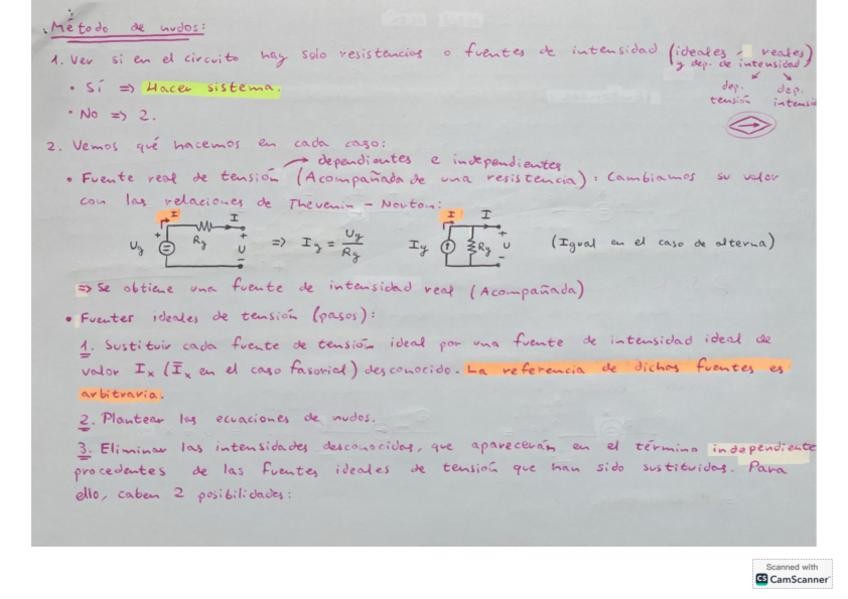 Método de nudos:
1. Ver si en el circuito hay solo resistencias o fuentes de intensidad (ideales - reales)
y dep. de intensidad)
dep. tensión
dep. intensi
• Sí => Hacer sistema.
• No => 2.
2. Vemos qué hacemos en cada caso:
dependientes e independientes
• Fuente real de tensión (Acompañada de una resistencia): Cambiamos su valor
con las relaciones de Thévenin - Nouton:
Ug + I Rg I + U - => Ig = Ug/Rg Ig I Rg I + U - (Igual en el caso de alterna)
=> Se obtiene una fuente de intensidad real (Acompañada)
• Fuentes ideales de tensión (pasos):
1. Sustituir cada fuente de tensión ideal por una fuente de intensidad ideal de
valor Ix (Īx en el caso fasorial) desconocido. La referencia de dichas fuentes es
arbitraria.
2. Plantear las ecuaciones de nudos.
3. Eliminar las intensidades desconocidas, que aparecerán en el término independiente
procedentes de las fuentes ideales de tensión que han sido sustituidas. Para
ello, caben 2 posibilidades:
Scanned with
CS CamScanner